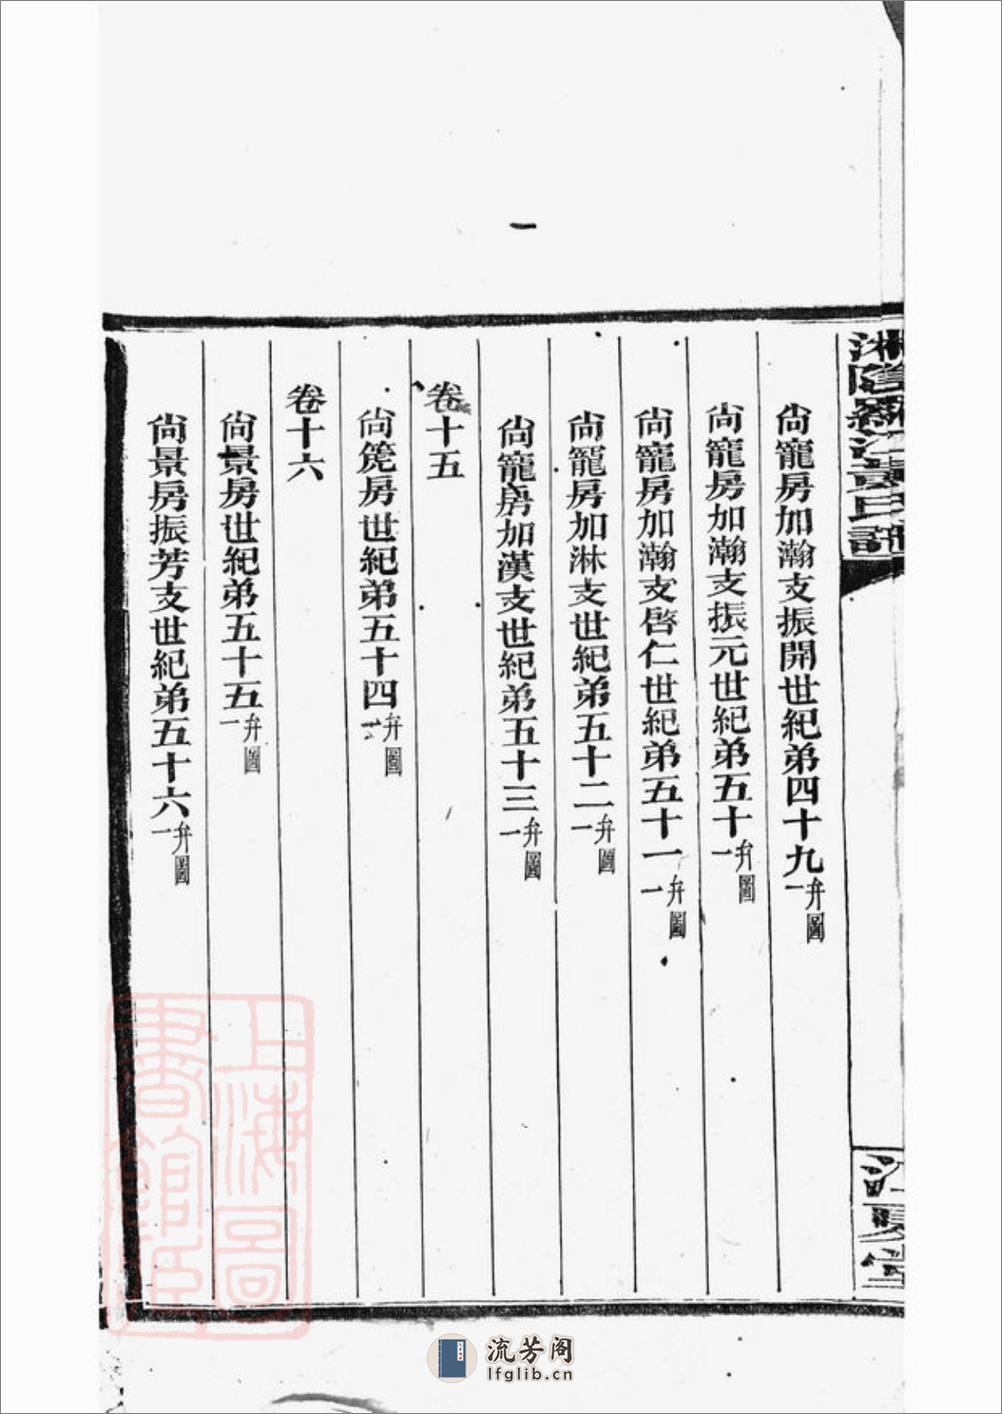 湘陰羅江黃氏譜
江夏堂
尙寵房加瀚支振開世紀弟四十九弁圖一
尙寵房加瀚支振元世紀弟五十弁圖一
尙寵房加瀚支啓仁世紀弟五十一弁圖一
尙寵房加淋支世紀弟五十二弁圖一
尙寵房加漢支世紀弟五十三弁圖一
卷十五
尙箢房世紀弟五十四弁圖一
卷十六
尙景房世紀弟五十五弁圖一
尙景房振芳支世紀弟五十六弁圖一
上海圖書館藏
流芳阁
lfglib.cn